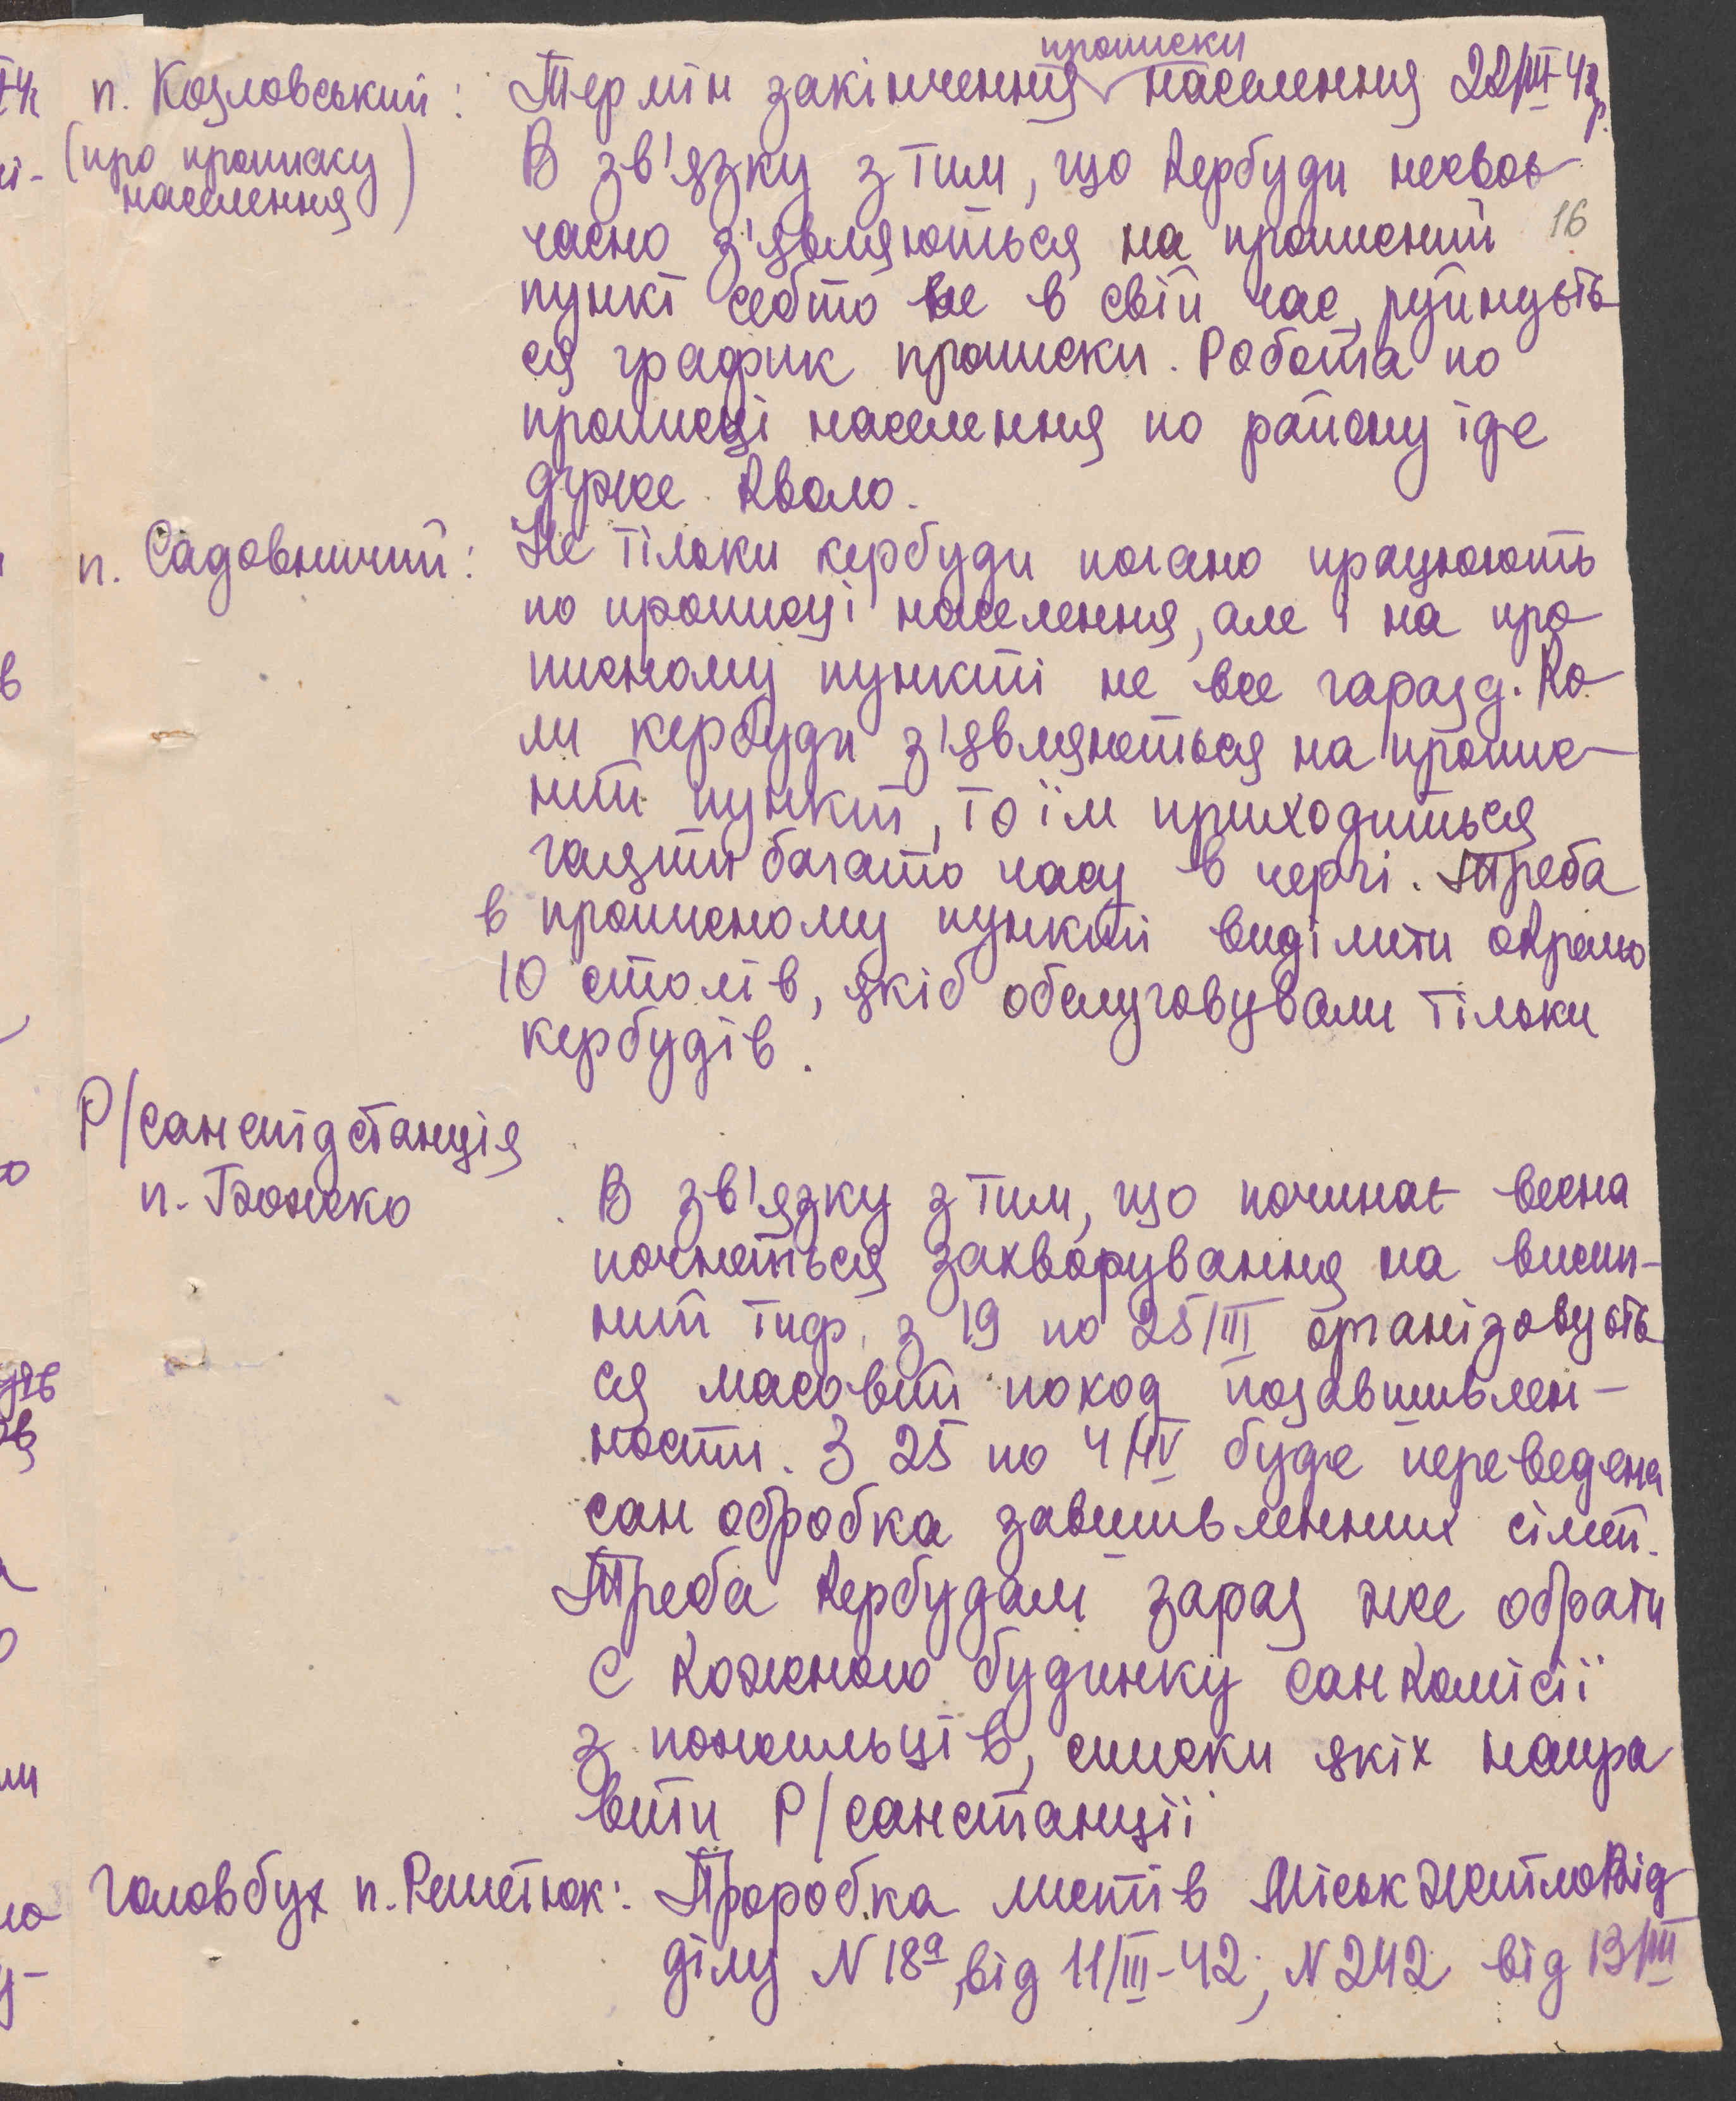 прописки
п. Козловський: Термін закінчення населення 22/III-42р.
(про прописку населення)
В зв'язку з тим, що кербуди несвоє-
16
часно з'являються на прописний
пункт себто не в свій час, руйнуєть-
ся график прописки. Робота по
прописці населення по району іде
дуже кволо.
п. Садовничий: Не тільки кербуди погано працюють
по прописці населення, але і на про-
писному пункті не все гаразд. Ко-
ли кербуди з'являються на пропис-
ний пункт, то їм приходиться
гаяти багато часу в черзі. Треба
в прописному пункті виділити окремо
10 столів, якіб обслуговували тільки
кербудів.
Р/санепідстанція
п. В зв'язку з тим, що починає весна
почнеться захворування на висип-
ний тиф, з 19 по 25/III організовуєть-
ся масовий поход позавшивлен-
ности. З 25 по 4/IV буде переведена
сан обробка завшивленних сімей.
Треба кербудам зараз же обрати
с кожного будинку санкомісії
з пожильців, списки якіх напра
вити Р/санстанції
Головбух п. Решетюк: Проробка листів Міськжитловід
ділу N 18а від 11/III-42; N 242 від 13/III